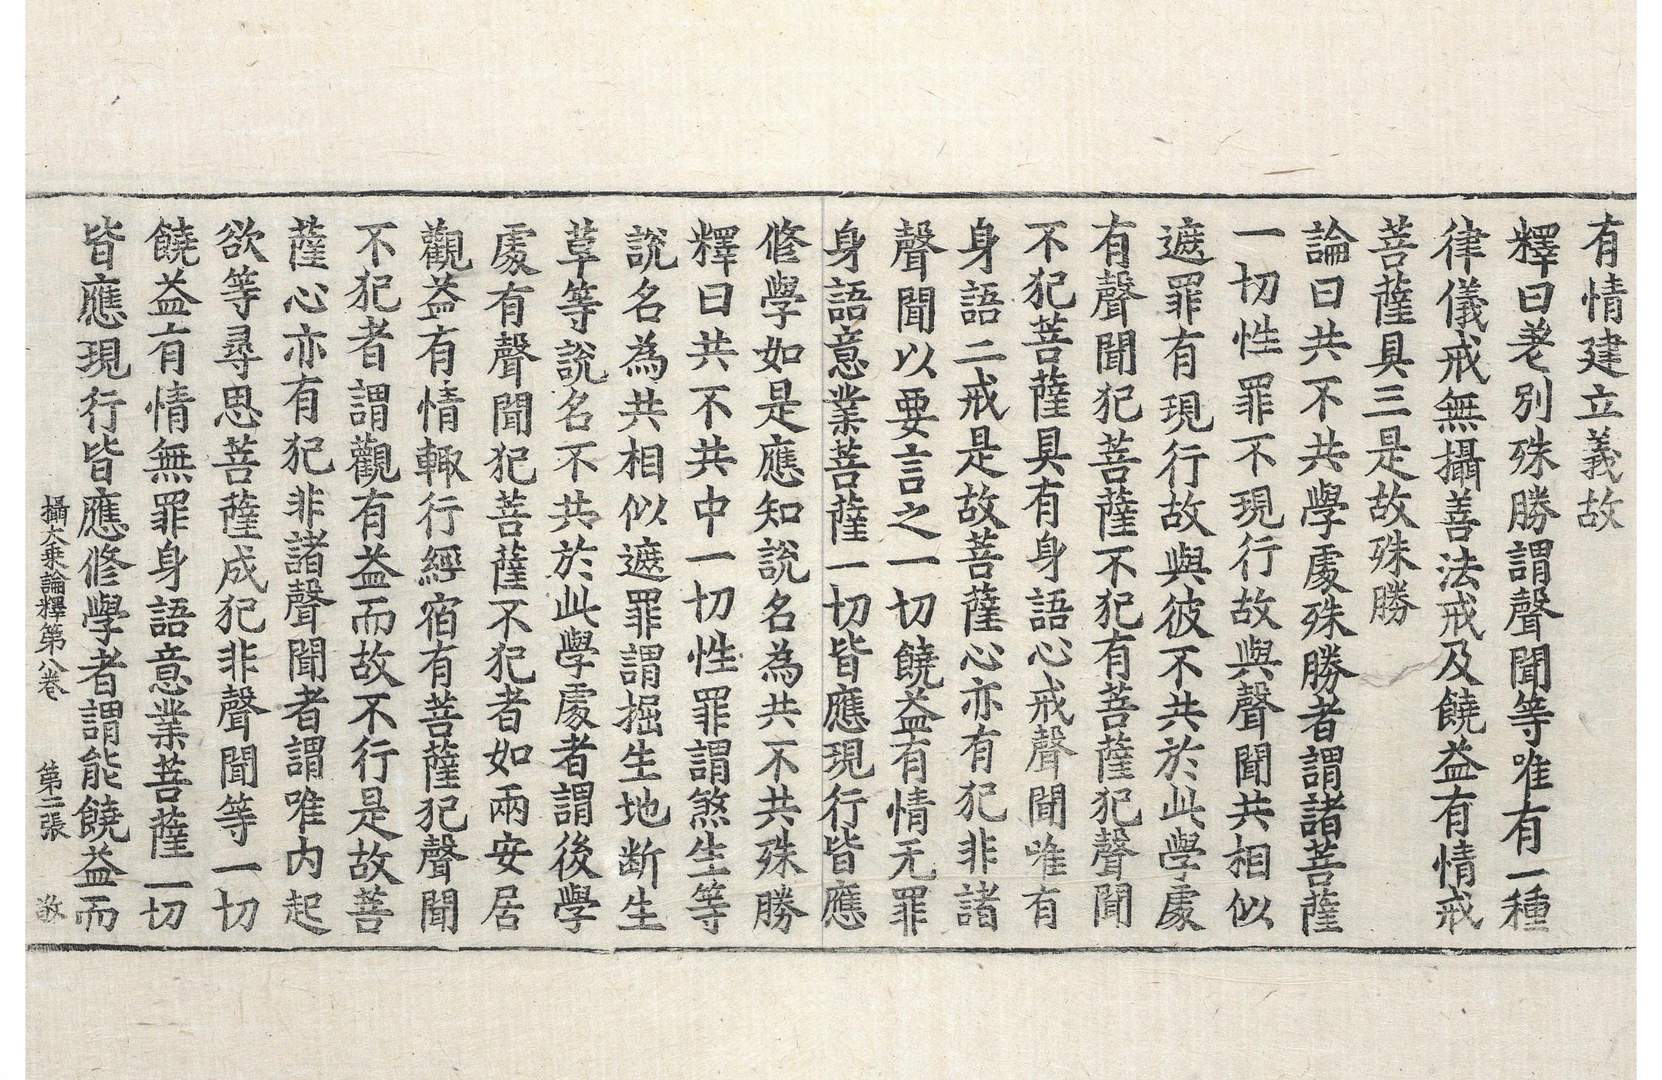 有情建立義故
釋曰差別殊勝謂聲聞等唯有一種
律儀戒無攝善法戒及饒益有情戒
菩薩具三是故殊勝
論曰共不共學處殊勝者謂諸菩薩
一切性罪不現行故與聲聞共相似
遮罪有現行故與彼不共於此學處
有聲聞犯菩薩不犯有菩薩犯聲聞
不犯菩薩具有身語心戒聲聞唯有
身語二戒是故菩薩心亦有犯非諸
聲聞以要言之一切饒益有情无罪
身語意業菩薩一切皆應現行皆應
修學如是應知說名為共不共殊勝
釋曰共不共中一切性罪謂煞生等
說名為共相似遮罪謂掘生地斷生
草等說名不共於此學處者謂後學
處有聲聞犯菩薩不犯者如兩安居
觀益有情輙行經宿有菩薩犯聲聞
不犯者謂觀有益而故不行是故菩
薩心亦有犯非諸聲聞者謂唯內起
欲等尋思菩薩成犯非聲聞等一切
饒益有情無罪身語意業菩薩一切
皆應現行皆應修學者謂能饒益而
攝大乘論釋第八卷 第二張 敬